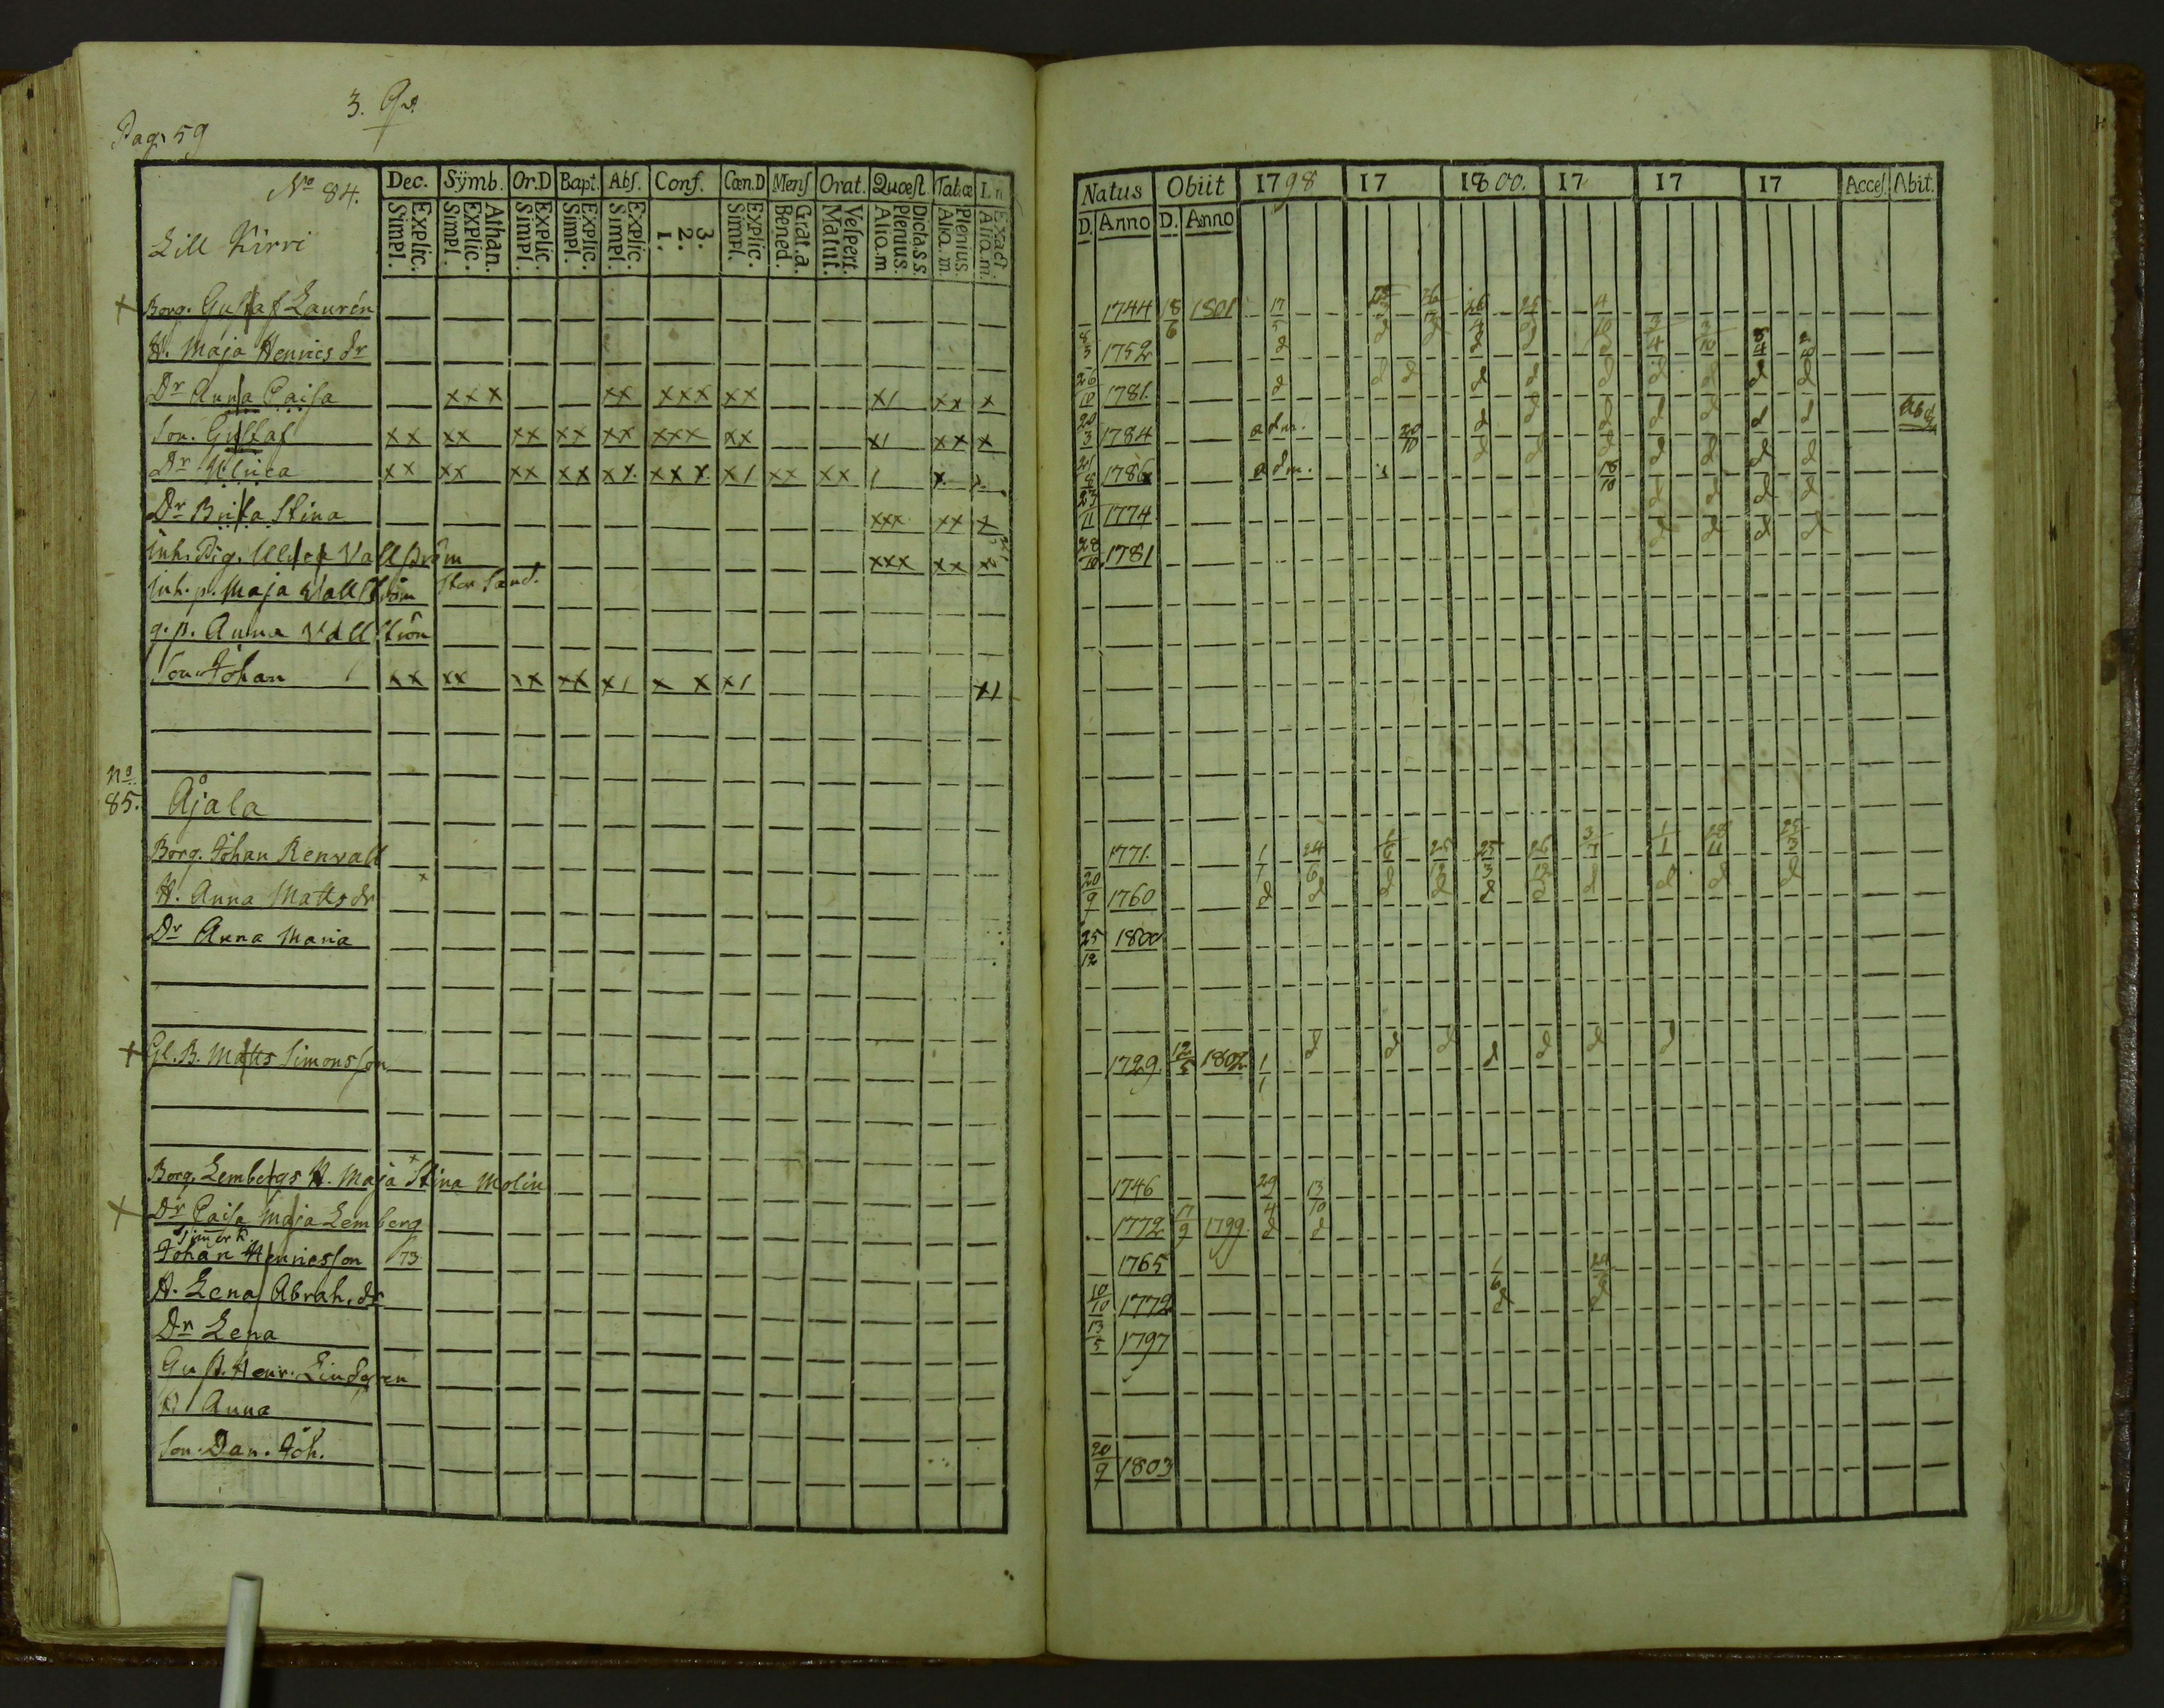 Pag. 59
3. Qv.
No 84.
Lill Kirri
Dec. Sÿmb. Or.D Bapt. Abſ. Conf. Cœn.D Menſ Orat. Quœſt Tab.œ
Explic. Simpl. Athan. Explic. Simpl. Explic. Simpl. Explic. Simpl. Explic. Simpl. 3. 2. 1. Explic. Simpl. Grat.a. Bened. Veſpert. Matut. Dicta.s.s. Plenius. Aliq.m Plenius. Aliq.m. Exact Aliq.m.
Natus Obiit 1798 17 1800. 17 17 17 Acceſ. Abit.
D. Anno D. Anno
Borg. Gustaf Laurén 1744 18/6 1801 17/5
H. Maja Henrics dr 1752
Dr Anna Caisa xxx xx xxx xx x1 xx x 26/10 1781.
Son. Gustaf xx xx xx xx xx xxx xx x1 xx x 20/3 1784 adm. 20/10 Abg
Dr Ulrica xx xx xx xx xx xxx x1 xx xx 1 x 1786 adm. 18/10
Dr Brita Stina xxx xx x 23/11 1774
Inh. Pig. Ulrica Vallström xxx xx x 28/10 1781
Inh. p. Maja Wallström
q. p. Anna Vallström
Son Johan xx xx xx xx x1 x x x1 x1
No 85. Åjala
Borg. Johan Renvall 1771. 1/1 24/6
H. Anna Matts dr 20/9 1760 d d d d d d d d d d
Dr Anna Maria 25/12 1800
Gl. B. Matts Simonsson 1729. 12/5 1802 1/1 d d d d d d d
Borg. Lembergs H. Maja Stina Molin 1746 29/4 13/10
Dr Caisa Maja Lemberg 1772 17/9 1799. d d
Johan Henricsson 73 1765
H. Lena Abrah. dr 10/10 1772
Dr Lena 13/5 1797
Gust. Henr. Lindgren
H. Anna
Son. Dan. Joh. 20/9 1803